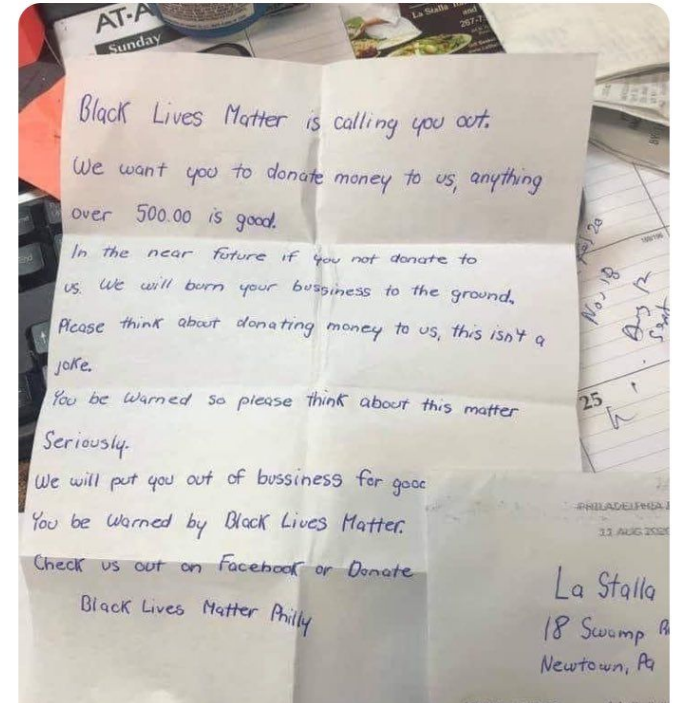 AT-A
Sunday
La Stalla
and
267-7
Black Lives Matter is calling you out.
We want you to donate money to us, anything
over 500.00 is good.
In the near future if you not donate to
us. We will burn your bussiness to the ground.
Please think about donating money to us, this isn't a
joke.
You be warned so please think about this matter
Seriously.
We will put you out of bussiness for good
You be warned by Black Lives Matter.
Check us out on Facebook or Donate
Black Lives Matter Philly
Nov 18
Aug 12
25
PHILADELPHIA
11 AUG 2020
La Stalla
18 Swamp R
Newtown, Pa